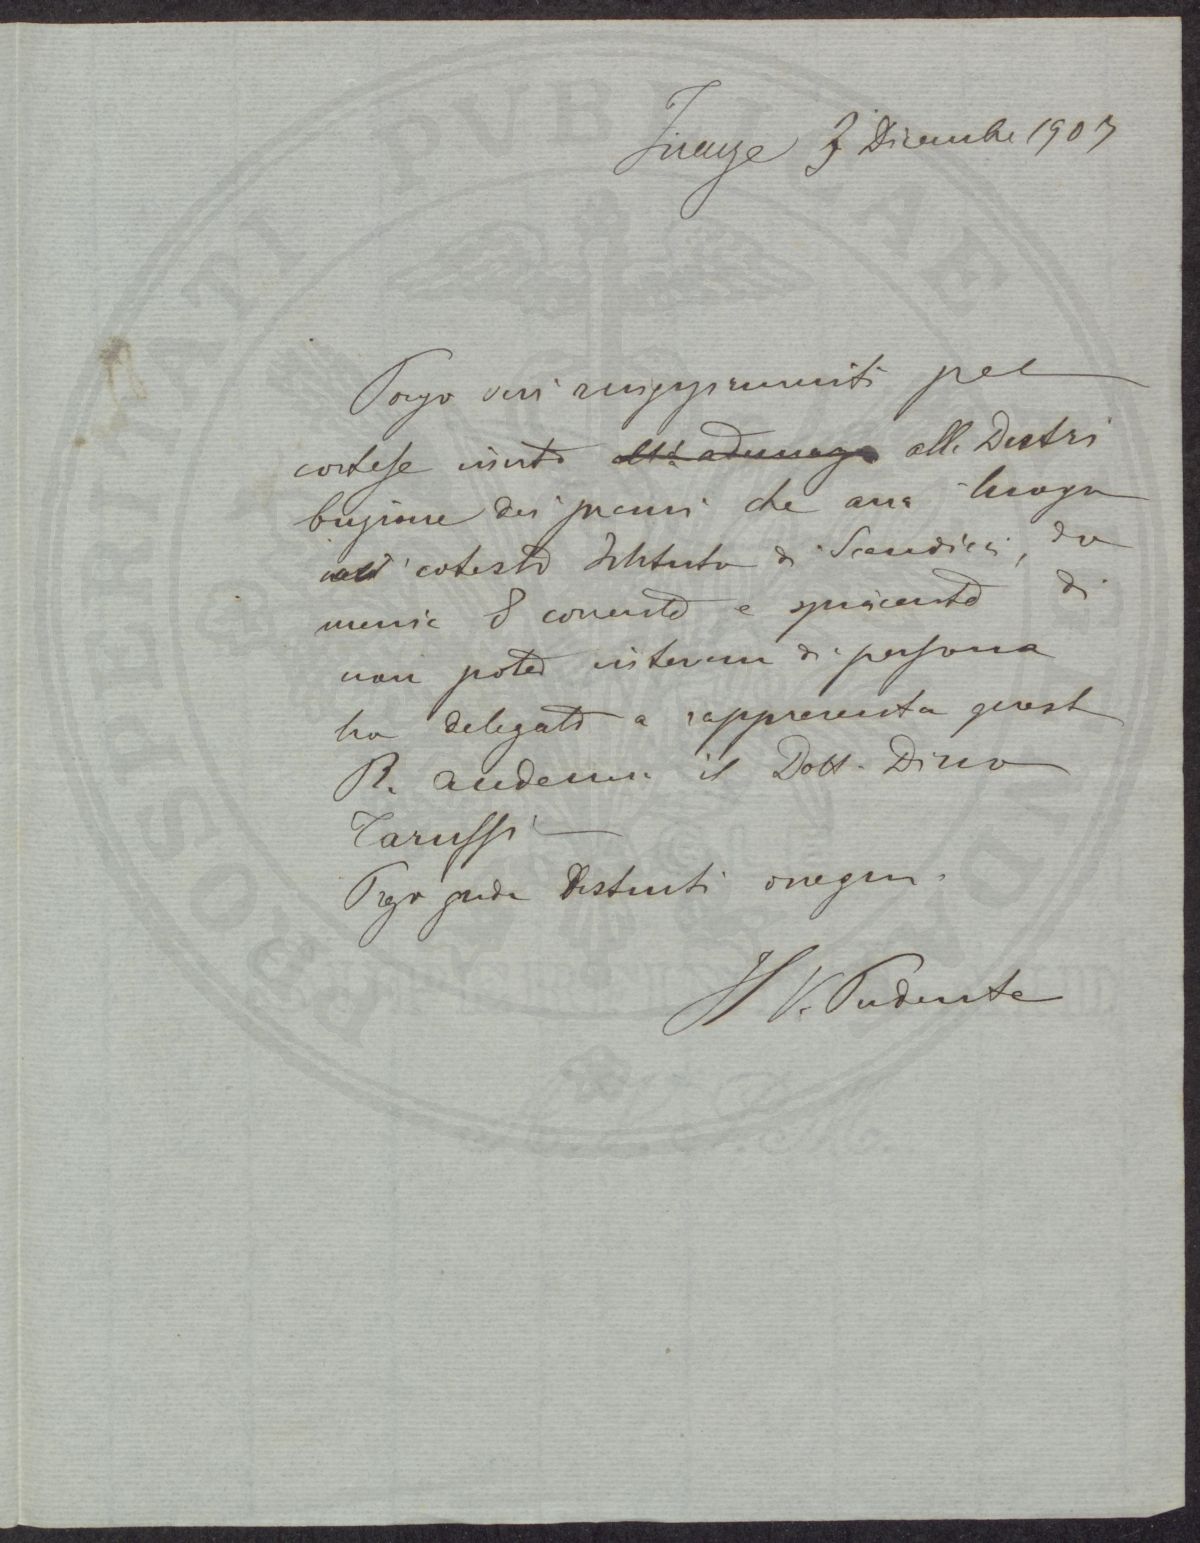 Firenze 3 Dicembre 1907
Porgo vivi ringraziamenti pel
cortese invito all'adunanza alla Distri
buzione dei premi che avrà luogo
cotesto Istituto di Scandicci, do
menica 8 corrente e spiacente di
non poter intervenire di persona
ho delegato a rappresentare questa
R. Accademia il Dott. Dino
Taruffi
Prego gradire distinti ossequi.
Il V. Presidente
PROSPERITATI PVBLICAE